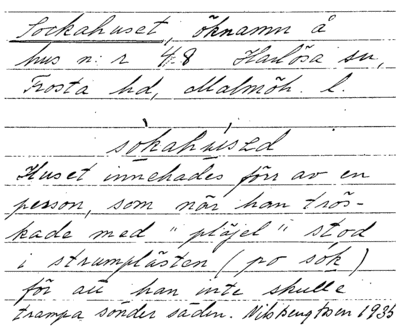 Sockahuset, öknamn å
hus n:r 48 Harlösa sn,
Frosta hd, Malmöh. l.
sòkahùszd
Huset innehades förr av en
person, som när han trös-
kade med "pläjel" stod
i strumplästen (po sòk)
för att han inte skulle
trampa sönder säden. Nils Bengtsson 1935